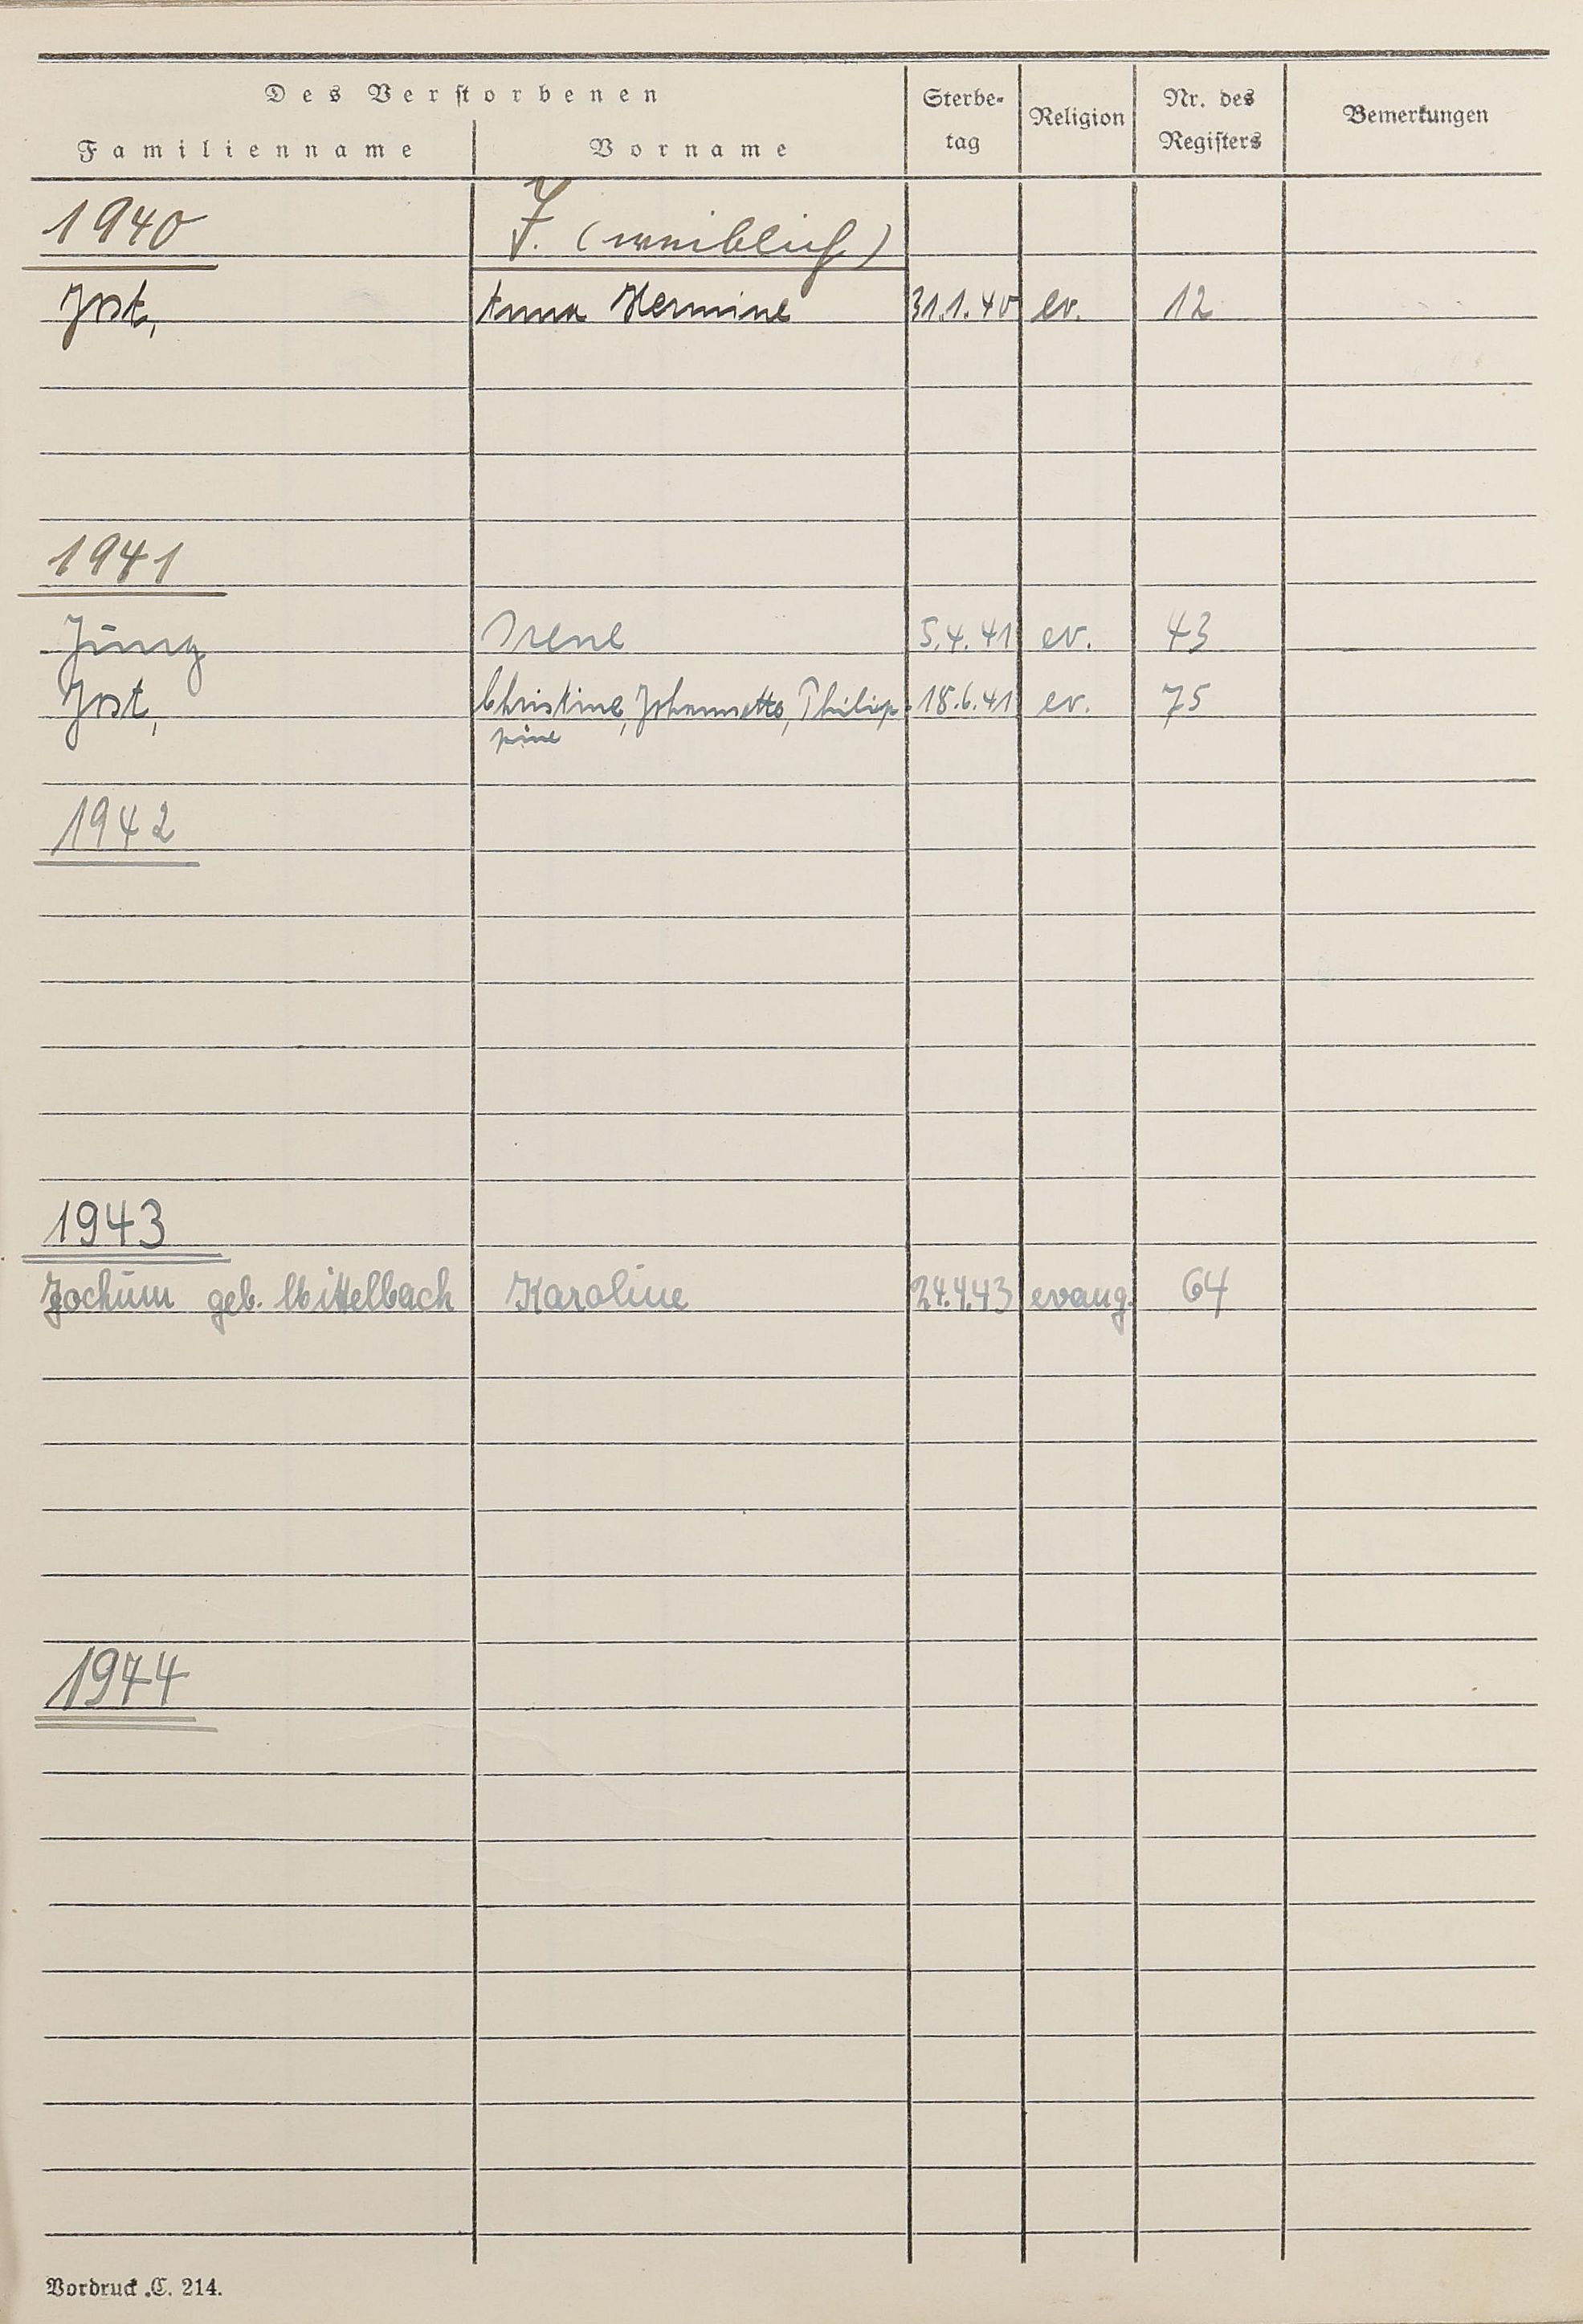 Des Verstorbenen
Familienname Vorname Sterbe-
tag Religion Nr. des
Registers Bemerkungen
1940 J. (weiblich)
Jost, Anna Hermine 31.1.40 ev. 12
1941
Jung Irene 5.4.41 ev. 43
Jost, Christine, Johannette, Philip- 18.6.41 ev. 75
pine
1942
1943
Jochum geb. Mittelbach Karoline 24.4.43 evang. 64
1944
Vordruck C. 214.